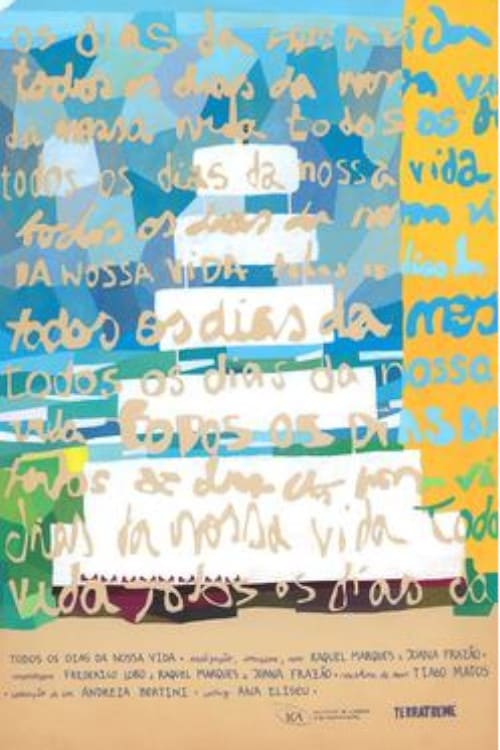 os dias da nossa vida
todos os dias da nossa vi
da nossa vida todos os d
todos os dias da nossa vida
todos os dias da nossa vi
DA NOSSA VIDA todos os dias da
todos os dias da nos
todos os dias da nossa
vida TODOS OS DIAS DA
todos os dias da nossa vi
dias da nossa vida Todo
vida Todos os dias da
TODOS OS DIAS DA NOSSA VIDA • realização, RAQUEL MARQUES e JOANA FRAZÃO •
montagem FREDERICO LOBO e RAQUEL MARQUES e JOANA FRAZÃO • TIAGO MATOS
• ANDREIA BERTINI • ANA ELISEU •
ICA TERRATREME